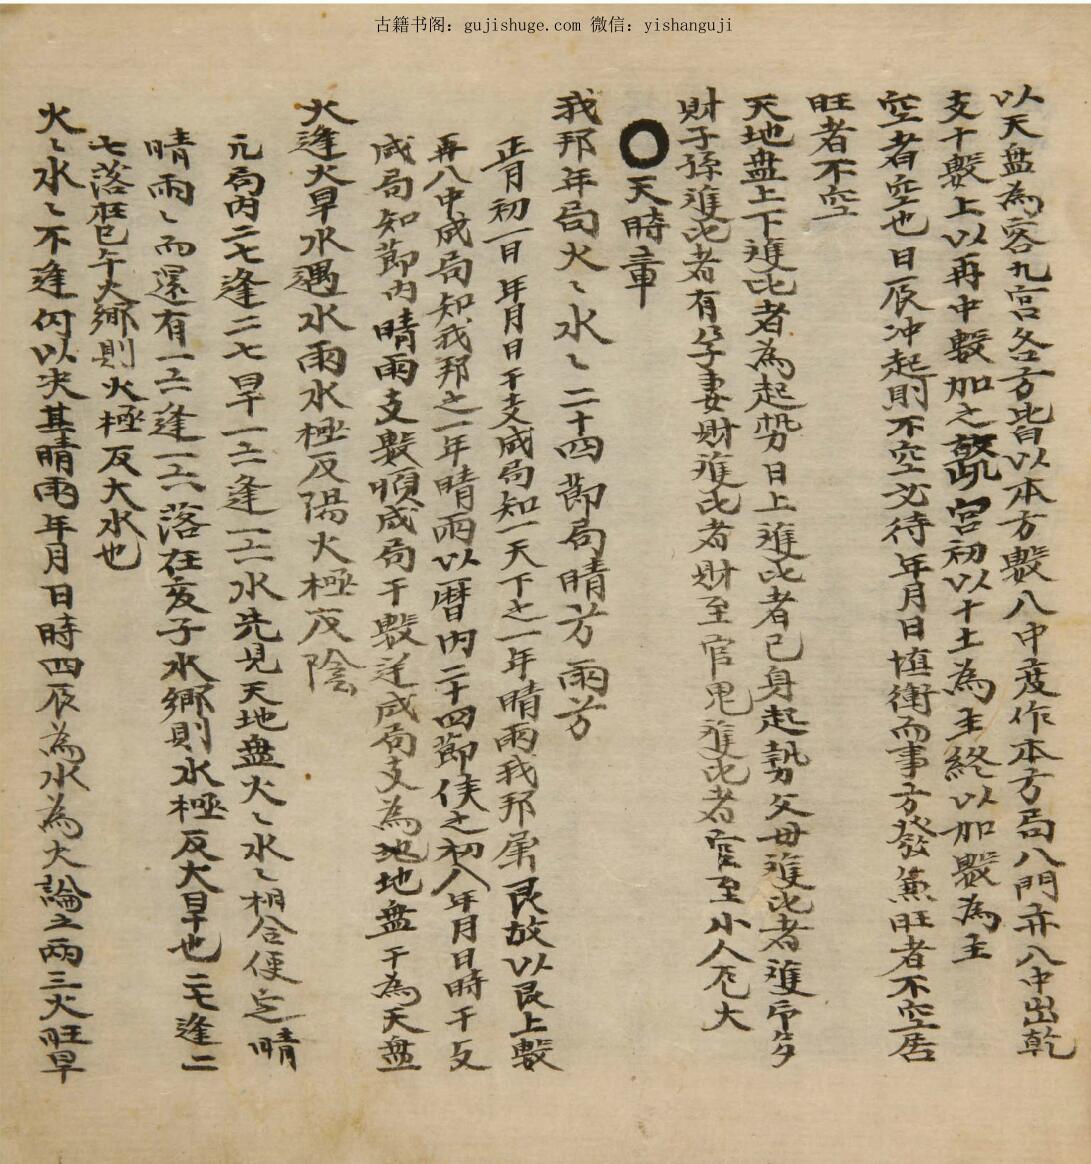 古籍书阁：gujishuge.com 微信：yishanguji
以天盘為客九宮各方皆以本方數八中度作本方局八門亦八中出乾
支干數上以再中數加之故宮初以干土為主終以加數為主
空者空也日辰冲起則不空必待年月日填衝而事方發無旺者不空居
旺者不空
天地盘上下進比者為起势日上進比者已身起勢父母進比者進
財子孫進比者有孕妻財進比者財至官鬼進比者官至小人厄大
〇天時章
我邦年局火〻水〻二十四節局晴方雨方
正月初一日年月日干支成局知一天下之一年晴雨我邦屬艮故以艮上數
再八中成局知我邦之一年晴雨以曆內二十四節侯之初八年月日時干支
成局知節內晴雨支數順成局干數逆成局支為地地盘干為天盘
火逢火旱水遇水雨水極反陽火極反陰
元局內二七逢二七旱一六逢一六水先見天地盘火〻水〻相合便定晴
晴雨〻而還有一六逢一六落在亥子水鄉則水極反大旱也二七逢二
七落在巳午火鄉則火極反大水也
火〻水〻不逢何以决其晴雨年月日時四辰為水為火論之兩三火旺旱